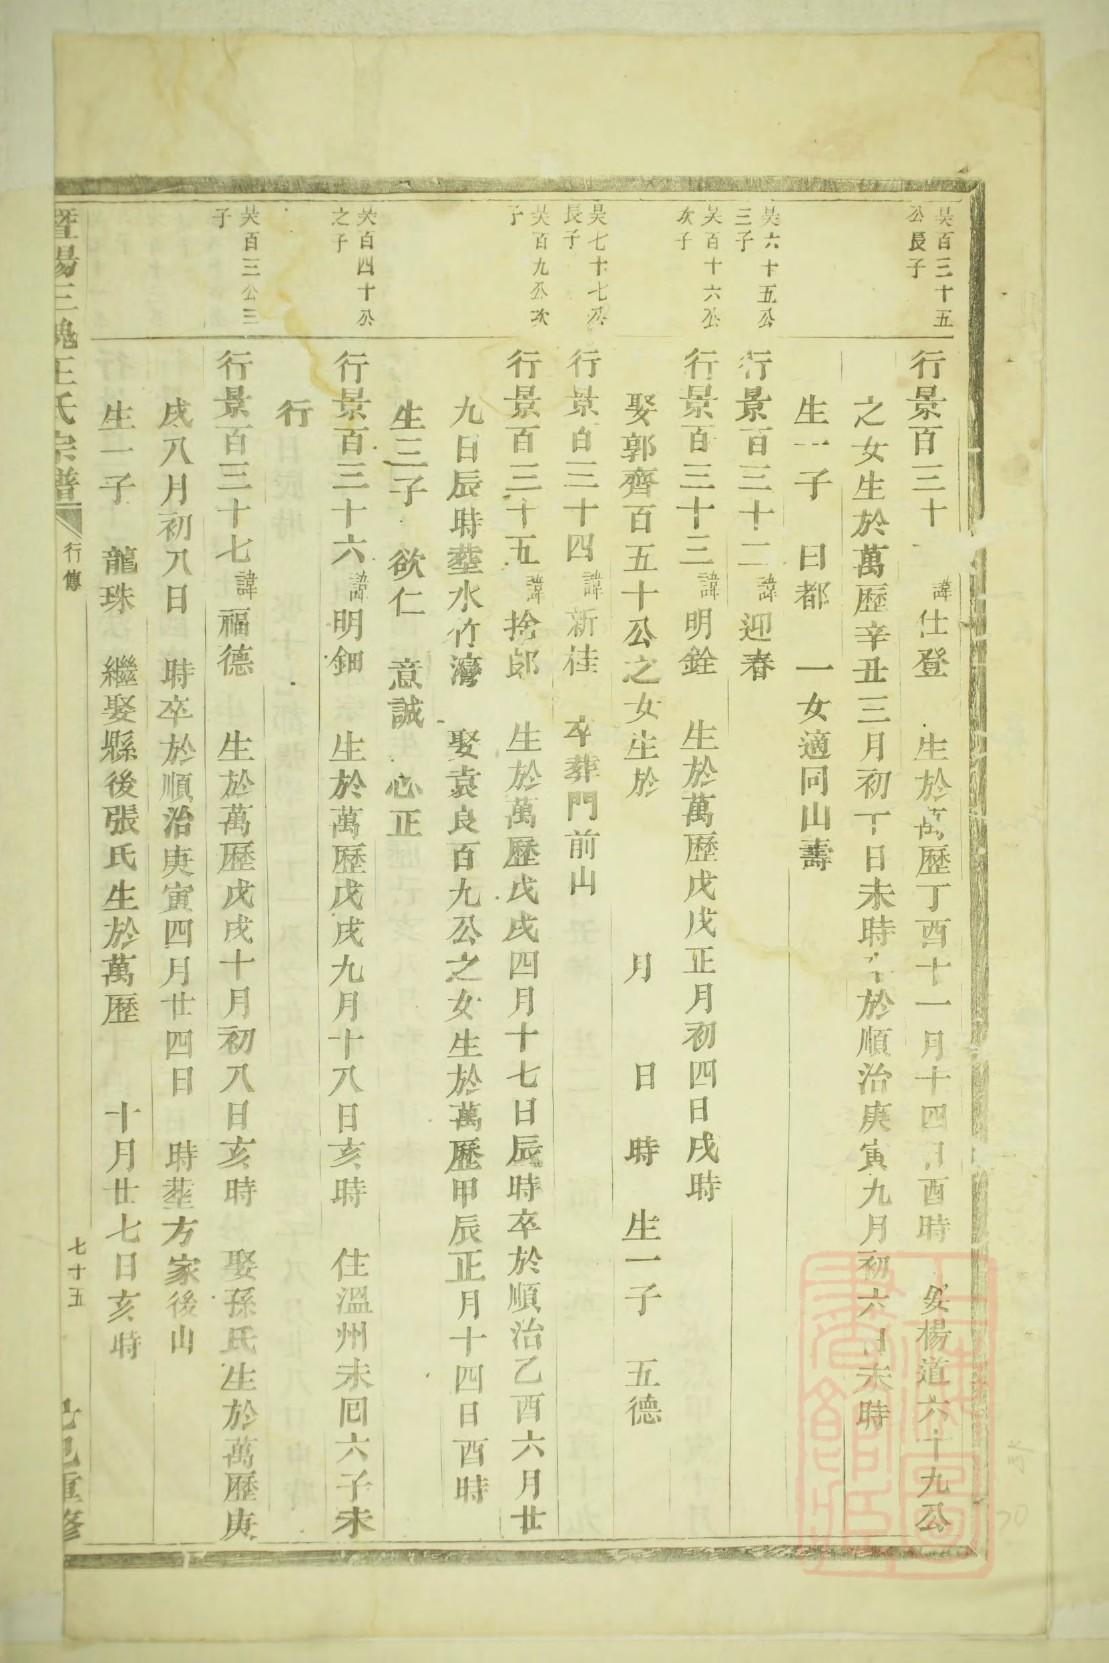 吳百三十五
公長子
行景百三十 諱仕登 生於萬歷丁酉十一月十四日酉時 娶楊道六十九公
之女生於萬歷辛丑三月初十日未時卒於順治庚寅九月初六日未時
生一子 曰都 一女適同山壽
吳六十五公
三子
行景百三十二諱迎春
吳百十六公
次子
行景百三十三諱明銓 生於萬歷戊戌正月初四日戌時
娶郭齊百五十公之女生於 月 日 時 生一子 五德
吳七十七公
長子
行景百三十四諱新桂 卒葬門前山
吳百九公次
子
行景百三十五諱捨郎 生於萬歷戊戌四月十七日辰時卒於順治乙酉六月廿
九日辰時塟水竹灣 娶袁良百九公之女生於萬歷甲辰正月十四日酉時
生三子 欲仁 意誠 心正
吳百四十公
之子
行景百三十六諱明鈿 生於萬歷戊戌九月十八日亥時 住溫州未囘六子未
行
吳百三公三
子
行景百三十七諱福德 生於萬歷戊戌十月初八日亥時 娶孫氏生於萬歷庚
戌八月初八日 時卒於順治庚寅四月廿四日 時塟方家後山
生一子 龍珠 繼娶縣後張氏生於萬歷 十月廿七日亥時
暨陽三槐王氏宗譜
行傳
七十五
重修